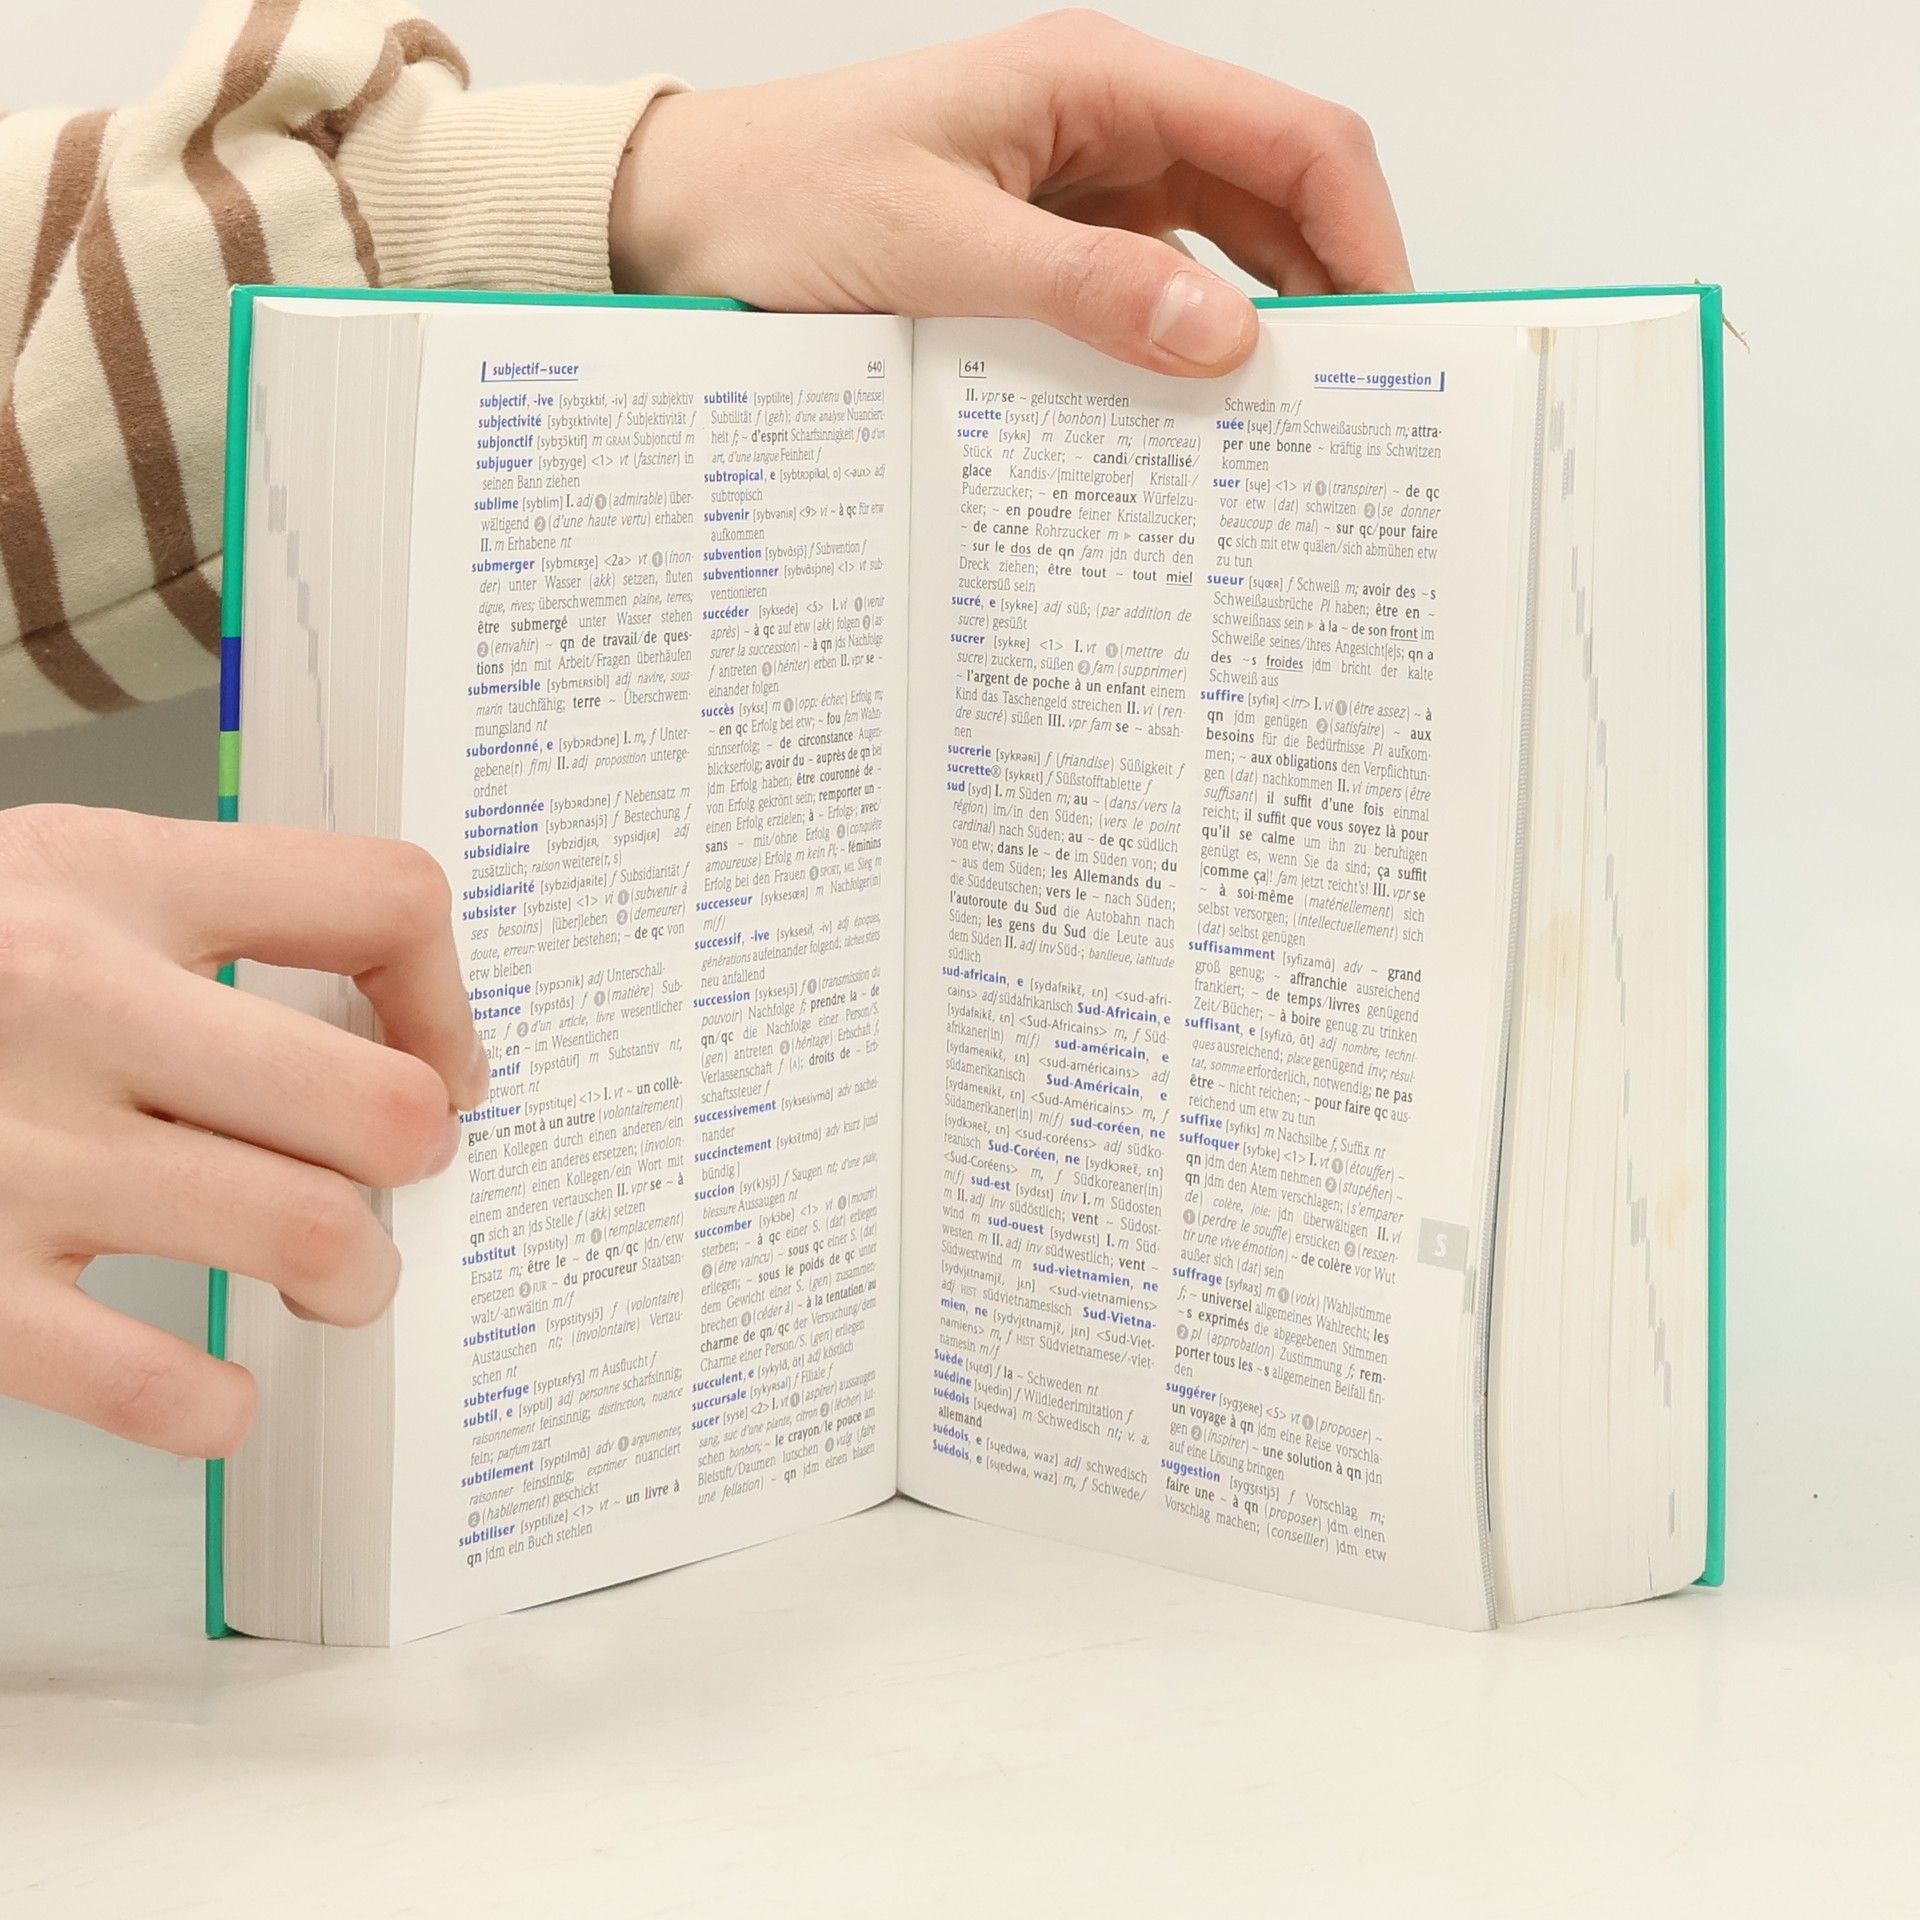 subjectif–sucer
640
subjectif, -ive [sybʒɛktif, -iv] adj subjektiv
subjectivité [sybʒɛktivite] f Subjektivität f
subjonctif [sybʒɔ̃ktif] m GRAM Subjonctif m
subjuguer [sybʒyge] <1> vt (fasciner) in
seinen Bann ziehen
sublime [syblim] I. adj ❶ (admirable) über-
wältigend ❷ (d'une haute vertu) erhaben
II. m Erhabene nt
submerger [sybmɛʀʒe] <2a> vt ❶ (inon-
der) unter Wasser (akk) setzen, fluten
digue, rives; überschwemmen plaine, terres;
être submergé unter Wasser stehen
❷ (envahir) ~ qn de travail/de ques-
tions jdn mit Arbeit/Fragen überhäufen
submersible [sybmɛʀsibl] adj navire, sous-
marin tauchfähig; terre ~ Überschwem-
mungsland nt
subordonné, e [sybɔʀdɔne] I. m, f Unter-
gebene(r) f(m) II. adj proposition unterge-
ordnet
subordonnée [sybɔʀdɔne] f Nebensatz m
subornation [sybɔʀnasjɔ̃] f Bestechung f
subsidiaire [sybzidjɛʀ, sypsidjɛʀ] adj
zusätzlich; raison weitere(r, s)
subsidiarité [sybzidjaʀite] f Subsidiarität f
subsister [sybziste] <1> vi ❶ (subvenir à
ses besoins) [über]leben ❷ (demeurer)
doute, erreur: weiter bestehen; ~ de qc von
etw bleiben
ubsonique [sypsɔnik] adj Unterschall-
bstance [sypstɑ̃s] f ❶ (matière) Sub-
anz f ❷ d'un article, livre wesentlicher
alt; en ~ im Wesentlichen
antif [sypstɑ̃tif] m Substantiv nt,
ptwort nt
substituer [sypstitɥe] <1> I. vt ~ un collè-
gue/un mot à un autre (volontairement)
einen Kollegen durch einen anderen/ein
Wort durch ein anderes ersetzen; (involon-
tairement) einen Kollegen/ein Wort mit
einem anderen vertauschen II. vpr se ~ à
qn sich an jds Stelle f (akk) setzen
substitut [sypstity] m ❶ (remplacement)
Ersatz m; être le ~ de qn/qc jdn/etw
ersetzen ❷ JUR ~ du procureur Staatsan-
walt/-anwältin m/f
substitution [sypstitysjɔ̃] f (volontaire)
Austauschen nt; (involontaire) Vertau-
schen nt
subterfuge [syptɛʀfyʒ] m Ausflucht f
subtil, e [syptil] adj personne scharfsinnig;
raisonnement feinsinnig; distinction, nuance
fein; parfum zart
subtilement [syptilmɑ̃] adv ❶ argumenter,
raisonner feinsinnig; exprimer nuanciert
❷ (habilement) geschickt
subtiliser [syptilize] <1> vt ~ un livre à
qn jdm ein Buch stehlen
subtilité [syptilite] f soutenu ❶ (finesse)
Subtilität f (geh); d'une analyse Nuanciert-
heit f; ~ d'esprit Scharfsinnigkeit f ❷ d'un
art, d'une langue Feinheit f
subtropical, e [sybtʀɔpikal, o] <-aux> adj
subtropisch
subvenir [sybvəniʀ] <9> vi ~ à qc für etw
aufkommen
subvention [sybvɑ̃sjɔ̃] f Subvention f
subventionner [sybvɑ̃sjɔne] <1> vt sub-
ventionieren
succéder [syksede] <5> I. vi ❶ (venir
après) ~ à qc auf etw (akk) folgen ❷ (as-
surer la succession) ~ à qn jds Nachfolge
f antreten ❸ (hériter) erben II. vpr se ~
einander folgen
succès [syksɛ] m ❶ (opp: échec) Erfolg m;
~ en qc Erfolg bei etw; ~ fou fam Wahn-
sinnserfolg; ~ de circonstance Augen-
blickserfolg; avoir du ~ auprès de qn bei
jdm Erfolg haben; être couronné de ~
von Erfolg gekrönt sein; remporter un ~
einen Erfolg erzielen; à ~ Erfolgs-; avec/
sans ~ mit/ohne Erfolg ❷ (conquête
amoureuse) Erfolg m kein Pl; ~ féminins
Erfolg bei den Frauen ❸ SPORT, MIL Sieg m
successeur [syksesœʀ] m Nachfolger(in)
m(f)
successif, -ive [syksesif, -iv] adj époques,
générations aufeinander folgend; tâches stets
neu anfallend
succession [syksesjɔ̃] f ❶ (transmission du
pouvoir) Nachfolge f; prendre la ~ de
qn/qc die Nachfolge einer Person/S.
(gen) antreten ❷ (héritage) Erbschaft f,
Verlassenschaft f (A); droits de ~ Erb-
schaftssteuer f
successivement [syksesivmɑ̃] adv nachei-
nander
succinctement [syksɛ̃tmɑ̃] adv kurz [und
bündig]
succion [sy(k)sjɔ̃] f Saugen nt; d'une plaie,
blessure Aussaugen nt
succomber [sykɔ̃be] <1> vt ❶ (mourir)
sterben; ~ à qc einer S. (dat) erliegen
❷ (être vaincu) ~ sous qc einer S. (dat)
erliegen; ~ sous le poids de qc unter
dem Gewicht einer S. (gen) zusammen-
brechen ❸ (céder à) ~ à la tentation/au
charme de qn/qc der Versuchung/dem
Charme einer Person/S. (gen) erliegen
succulent, e [sykylɑ̃, ɑ̃t] adj köstlich
succursale [sykyʀsal] f Filiale f
sucer [syse] <2> I. vt ❶ (aspirer) aussaugen
sang, suc d'une plante, citron ❷ (lécher) lut-
schen bonbon; ~ le crayon/le pouce am
Bleistift/Daumen lutschen ❸ vulg (faire
une fellation) ~ qn jdm einen blasen
641
sucette–suggestion
II. vpr se ~ gelutscht werden
sucette [sysɛt] f (bonbon) Lutscher m
sucre [sykʀ] m Zucker m; (morceau)
Stück nt Zucker; ~ candi/cristallisé/
glace Kandis-/[mittelgrober] Kristall-/
Puderzucker; ~ en morceaux Würfelzu-
cker; ~ en poudre feiner Kristallzucker;
~ de canne Rohrzucker m ▶ casser du
~ sur le dos de qn fam jdn durch den
Dreck ziehen; être tout ~ tout miel
zuckersüß sein
sucré, e [sykʀe] adj süß; (par addition de
sucre) gesüßt
sucrer [sykʀe] <1> I. vt ❶ (mettre du
sucre) zuckern, süßen ❷ fam (supprimer)
~ l'argent de poche à un enfant einem
Kind das Taschengeld streichen II. vi (ren-
dre sucré) süßen III. vpr fam se ~ absah-
nen
sucrerie [sykʀəʀi] f (friandise) Süßigkeit f
sucrette® [sykʀɛt] f Süßstofftablette f
sud [syd] I. m Süden m; au ~ (dans/vers la
région) im/in den Süden; (vers le point
cardinal) nach Süden; au ~ de qc südlich
von etw; dans le ~ de im Süden von; du
~ aus dem Süden; les Allemands du ~
die Süddeutschen; vers le ~ nach Süden;
l'autoroute du Sud die Autobahn nach
Süden; les gens du Sud die Leute aus
dem Süden II. adj inv Süd-; banlieue, latitude
südlich
sud-africain, e [sydafʀikɛ̃, ɛn] <sud-afri-
cains> adj südafrikanisch Sud-Africain, e
[sydafʀikɛ̃, ɛn] <Sud-Africains> m, f Süd-
afrikaner(in) m(f) sud-américain, e
[sydameʀikɛ̃, ɛn] <sud-américains> adj
südamerikanisch Sud-Américain, e
[sydameʀikɛ̃, ɛn] <Sud-Américains> m, f
Südamerikaner(in) m(f) sud-coréen, ne
[sydkɔʀeɛ̃, ɛn] <sud-coréens> adj südko-
reanisch Sud-Coréen, ne [sydkɔʀeɛ̃, ɛn]
<Sud-Coréens> m, f Südkoreaner(in)
m(f) sud-est [sydɛst] inv I. m Südosten
m II. adj inv südöstlich; vent ~ Südost-
wind m sud-ouest [sydwɛst] I. m Süd-
westen m II. adj inv südwestlich; vent ~
Südwestwind m sud-vietnamien, ne
[sydvjɛtnamjɛ̃, jɛn] <sud-vietnamiens>
adj HIST südvietnamesisch Sud-Vietna-
mien, ne [sydvjɛtnamjɛ̃, jɛn] <Sud-Viet-
namiens> m, f HIST Südvietnamese/-viet-
namesin m/f
Suède [sɥɛd] f la ~ Schweden nt
suédine [sɥedin] f Wildlederimitation f
suédois [sɥedwa] m Schwedisch nt; v. a.
allemand
suédois, e [sɥedwa, waz] adj schwedisch
Suédois, e [sɥedwa, waz] m, f Schwede/
Schwedin m/f
suée [sɥe] f fam Schweißausbruch m; attra-
per une bonne ~ kräftig ins Schwitzen
kommen
suer [sɥe] <1> vi ❶ (transpirer) ~ de qc
vor etw (dat) schwitzen ❷ (se donner
beaucoup de mal) ~ sur qc/pour faire
qc sich mit etw quälen/sich abmühen etw
zu tun
sueur [sɥœʀ] f Schweiß m; avoir des ~s
Schweißausbrüche Pl haben; être en ~
schweißnass sein ▶ à la ~ de son front im
Schweiße seines/ihres Angesicht[e]s; qn a
des ~s froides jdm bricht der kalte
Schweiß aus
suffire [syfiʀ] <irr> I. vi ❶ (être assez) ~ à
qn jdm genügen ❷ (satisfaire) ~ aux
besoins für die Bedürfnisse Pl aufkom-
men; ~ aux obligations den Verpflichtun-
gen (dat) nachkommen II. vi impers (être
suffisant) il suffit d'une fois einmal
reicht; il suffit que vous soyez là pour
qu'il se calme um ihn zu beruhigen
genügt es, wenn Sie da sind; ça suffit
[comme ça]! fam jetzt reicht's! III. vpr se
~ à soi-même (matériellement) sich
selbst versorgen; (intellectuellement) sich
(dat) selbst genügen
suffisamment [syfizamɑ̃] adv ~ grand
groß genug; ~ affranchie ausreichend
frankiert; ~ de temps/livres genügend
Zeit/Bücher; ~ à boire genug zu trinken
suffisant, e [syfizɑ̃, ɑ̃t] adj nombre, techni-
ques ausreichend; place genügend inv; résul-
tat, somme erforderlich, notwendig; ne pas
être ~ nicht reichen; ~ pour faire qc aus-
reichend um etw zu tun
suffixe [syfiks] m Nachsilbe f, Suffix nt
suffoquer [syfɔke] <1> I. vt ❶ (étouffer) ~
qn jdm den Atem nehmen ❷ (stupéfier) ~
qn jdm den Atem verschlagen; (s'emparer
de) colère, joie: jdn überwältigen II. vi
❶ (perdre le souffle) ersticken ❷ (ressen-
tir une vive émotion) ~ de colère vor Wut
außer sich (dat) sein
suffrage [syfʀaʒ] m ❶ (voix) [Wahl]stimme
f; ~ universel allgemeines Wahlrecht; les
~s exprimés die abgegebenen Stimmen
❷ pl (approbation) Zustimmung f; rem-
porter tous les ~s allgemeinen Beifall fin-
den
suggérer [sygʒeʀe] <5> vt ❶ (proposer) ~
un voyage à qn jdm eine Reise vorschla-
gen ❷ (inspirer) ~ une solution à qn jdn
auf eine Lösung bringen
suggestion [sygʒɛstjɔ̃] f Vorschlag m;
faire une ~ à qn (proposer) jdm einen
Vorschlag machen; (conseiller) jdm etw
S